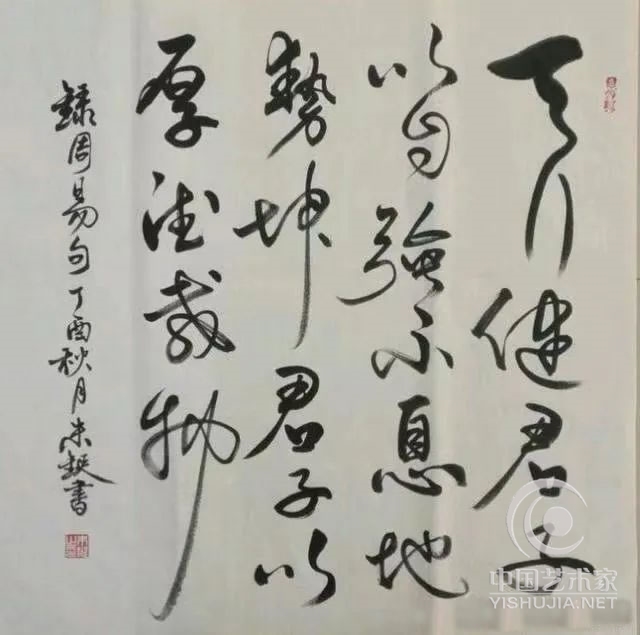 天行健君子
以自强不息地
勢坤君子以
厚德載物
録周易句丁酉秋月朱書
中国艺术家
YISHUJIA.NET